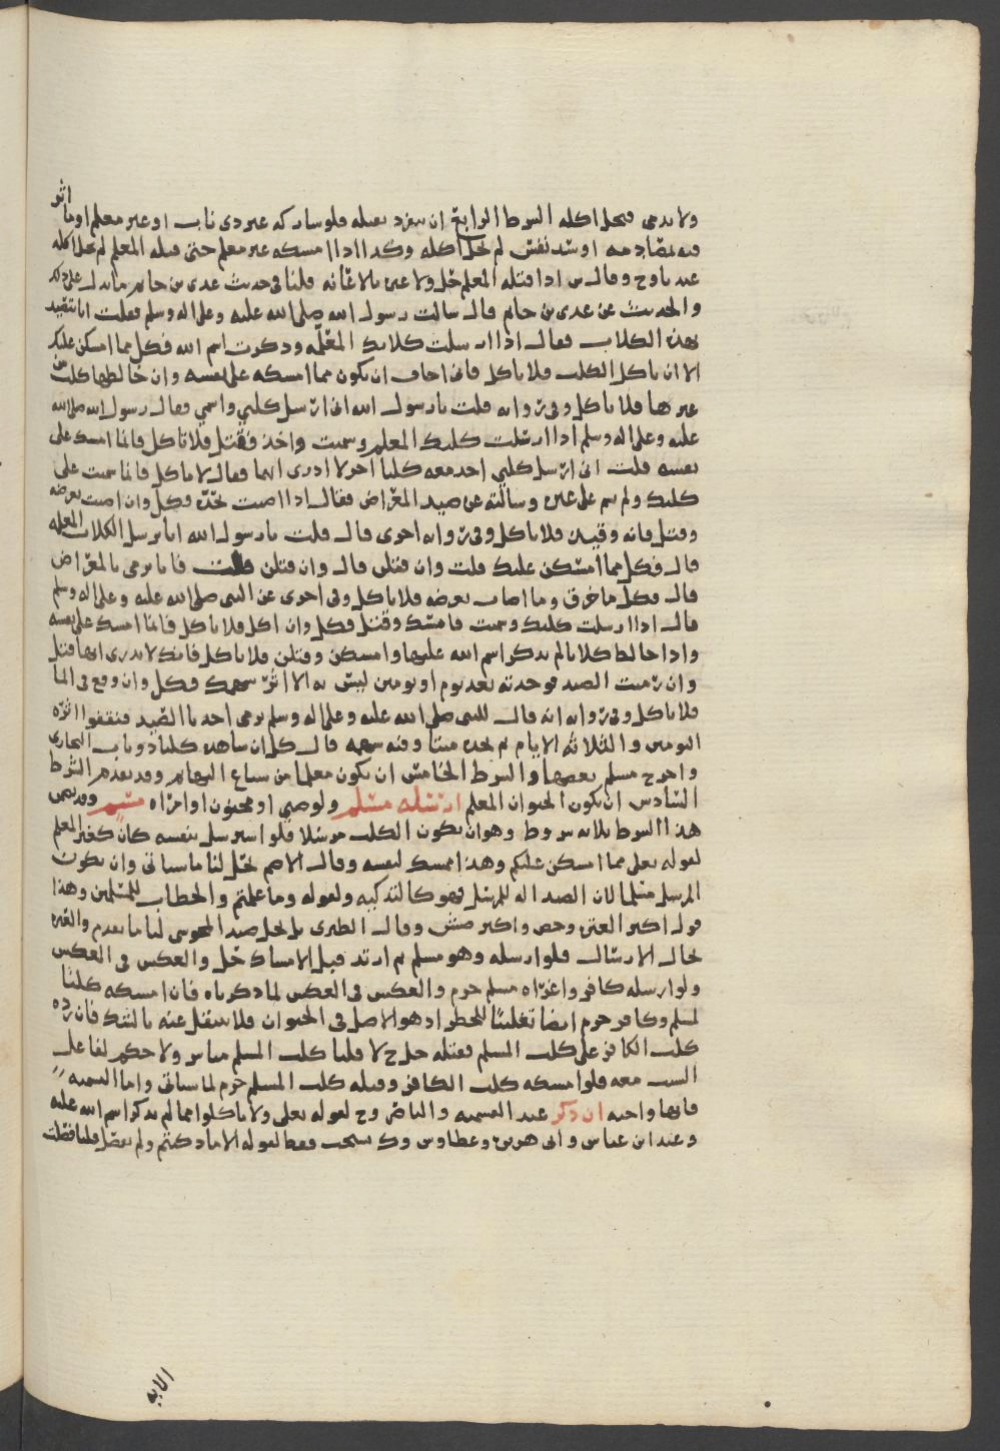 ولا يدمى فيحل اكله الشرط الرابع ان ينفرد بقتله فلو شاركه غير ذي ناب او غير معلم او ما اثر
فيه بمصادمه او شد نفس لم يحل اكله وكذا اذا امسكه غير معلم حتى قتله المعلم لم يحل اكله
والحديث عن عدي بن حاتم قال سالت رسول الله صلى الله عليه وعلى اله وسلم فقلت انا نتصيد
بهذه الكلاب فقال اذا ارسلت كلابك المعلمه وذكرت اسم الله فكل مما امسكن عليك
الا ان ياكل الكلب فلا تاكل فاني اخاف ان يكون مما امسكه على نفسه وان خالطها كلب من
غيرها فلا تاكل وفي روايه قلت يا رسول الله اني ارسل كلبي واسمي فقال رسول الله صلى الله
عليه وعلى اله وسلم اذا ارسلت كلبك المعلم وسميت واخذ فقتل فلا تاكل فانما امسك على
نفسه قلت اني ارسل كلبي اجد معه كلبا اخر لا ادري ايهما فقال لا تاكل فانما سميت على
كلبك ولم تسم على غيره وسالته عن صيد المعراض فقال اذا اصبت بحده فكل وان اصبت بعرضه
وقتل فانه وقيذ فلا تاكل وفي روايه اخرى قال قلت يا رسول الله انا نرسل الكلاب المعلمه
قال فكل مما امسكن عليك قلت وان قتلن قال وان قتلن قلت فانا نرمي بالمعراض
قال فكل ما خرق وما اصاب بعرضه فلا تاكل وفي اخرى عن النبي صلى الله عليه وعلى اله وسلم
قال اذا ارسلت كلبك وسميت فامسك وقتل فكل وان اكل فلا تاكل فانما امسك على نفسه
واذا خالط كلابا لم يذكر اسم الله عليها وامسكن وقتلن فلا تاكل فانك لا تدري ايها قتل
وان رميت الصيد فوجدته بعد يوم او يومين ليس به الا اثر سهمك فكل وان وقع في الما
فلا تاكل وفي روايه انه قال للنبي صلى الله عليه وعلى اله وسلم يرمي احدنا الصيد فنقفوا اثره
اليومين والثلاثه الايام ثم نجده ميتا وفيه سهمه قال كل ان شا هذه كلها روايات البخاري
واخرج مسلم بعضها والشرط الخامس ان يكون معلما من سباع البهايم وقد تقدم الشرط
السادس ان يكون الحيوان المعلم ارسله مسلم ولو صبي او مجنون او امراه مسم وقد تضمن
هذا الشرط ثلاثه شروط وهو ان يكون الكلب مرسلا فلو استرسل بنفسه كان كغير المعلم
لقوله تعلى مما امسكن عليكم وهذا امسك لنفسه وقال الاصم يحل لنا ما سياتي وان يكون
المرسل مسلما لان الصيد اله للمرسل فهو كالتذكيه ولقوله وما علمتم والخطاب للمسلمين وهذا
قول اكثر العتره وحص واكثر صش وقال الطبري بل يحل صيد المجوسي لنا ما تقدم والعبره
بحال الارسال فلو ارسله وهو مسلم ثم ارتد قبل الامساك حل والعكس في العكس
ولو ارسله كافر واغراه مسلم حرم والعكس في العكس لما ذكرناه فان امسكه كلبا
لمسلم وكافر حرم ايضا تغليبا للحظر اذ هو الاصل في الحيوان فلا ينتقل عنه بالشك فان رده
كلب الكافر على كلب المسلم فقتله حل ح لا قلنا كلب المسلم مباشر ولا حكم لفاعل
السبب معه فلو امسكه كلب الكافر وقتله كلب المسلم حرم لما سياتي واما التسميه
فانها واجبه ان ذكر عند القسميه والناصر وح لقوله تعلى ولا تاكلوا مما لم يذكر اسم الله عليه
وعند ابن عباس وابي هريره وعطا وس وك تستحب فقط لقوله الا ما ذكيتم ولم يفصل قلنا فصلت
الايه